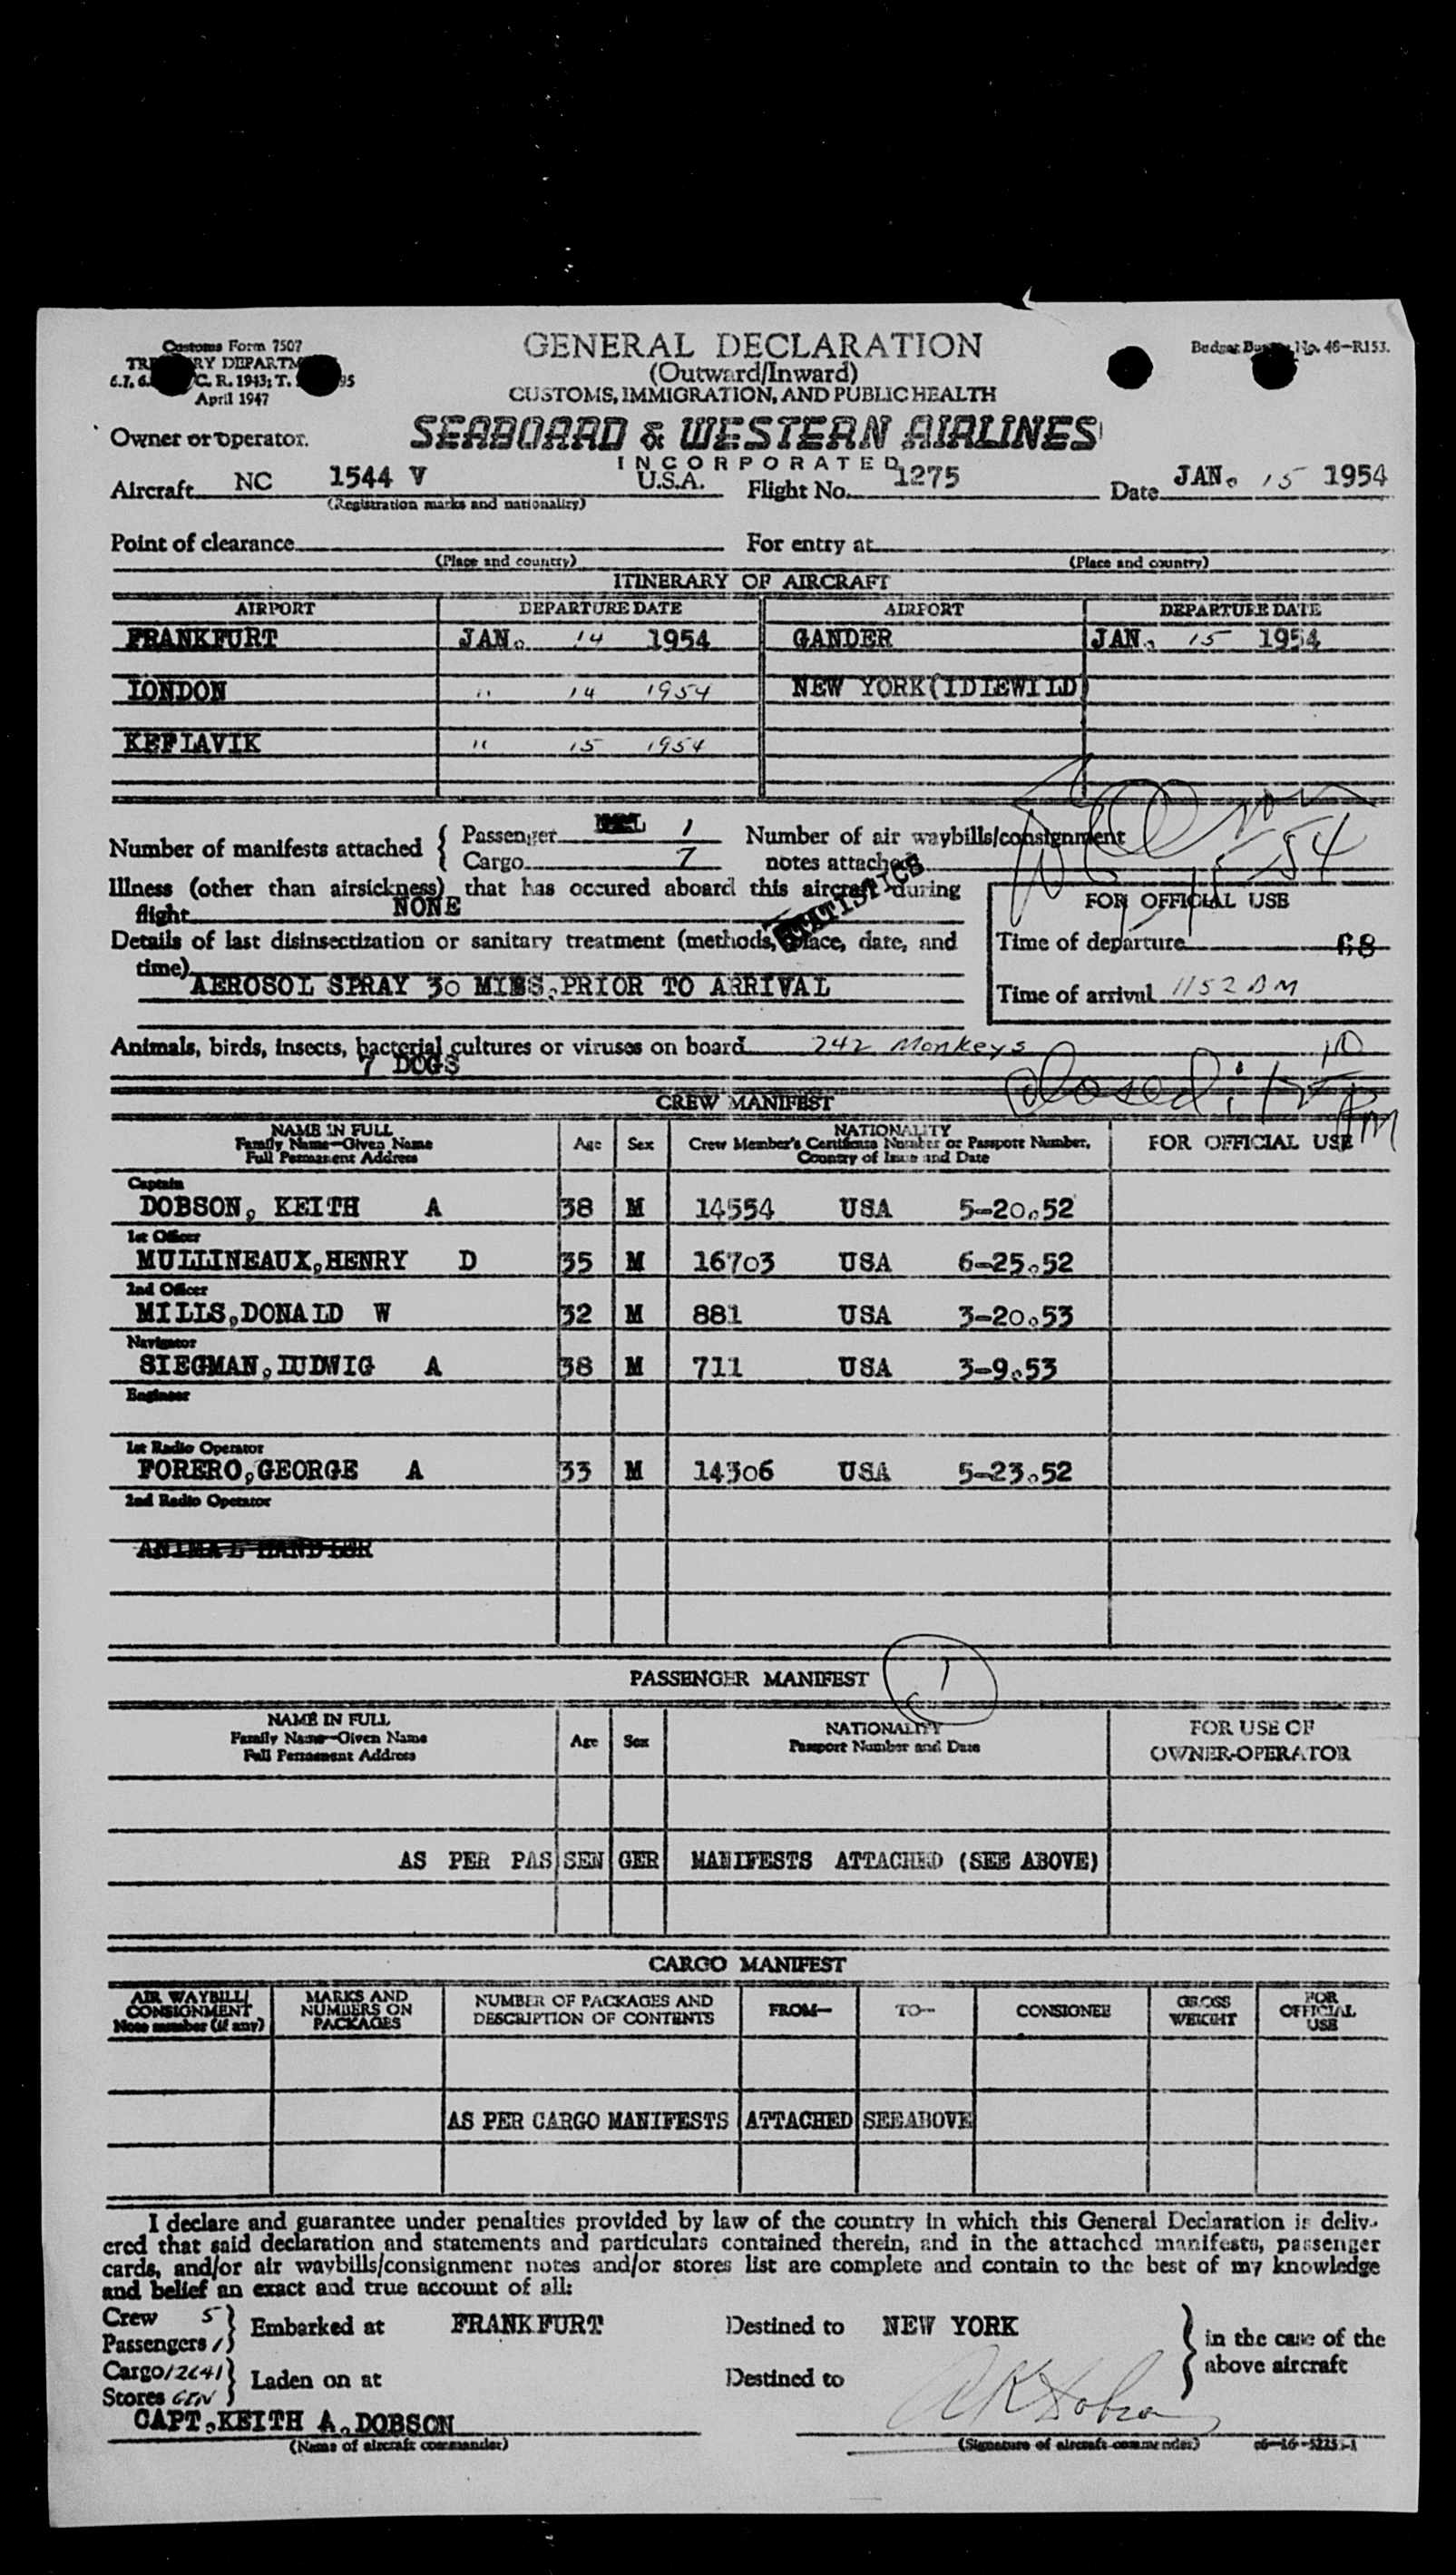 Customs Form 7507
GENERAL DECLARATION
(Outward/Inward)
CUSTOMS, IMMIGRATION, AND PUBLIC HEALTH
No. 48-R153.
C. R. 1943; T.
April 1947
Owner or operator.
SEABOARD & WESTERN AIRLINES
INCORPORATED
Aircraft NC 1544 V U.S.A. Flight No. 1275 Date JAN. 15 1954
(Registration marks and nationality)
Point of clearance For entry at
(Place and country) (Place and country)
ITINERARY OF AIRCRAFT
AIRPORT DEPARTURE DATE AIRPORT DEPARTURE DATE
FRANKFURT JAN. 14 1954 GANDER JAN. 15 1954
LONDON " 14 1954 NEW YORK(IDLEWILD)
KEFLAVIK " 15 1954
Number of manifests attached { Passenger 1 Number of air waybills/consignment
Cargo 7 notes attached
Illness (other than airsickness) that has occured aboard this aircraft during
flight NONE
STATISTICS
FOR OFFICIAL USE
Details of last disinsectization or sanitary treatment (methods, place, date, and
time) AEROSOL SPRAY 30 MINS.PRIOR TO ARRIVAL
Time of departure 68
Time of arrival 1152 AM
Animals, birds, insects, bacterial cultures or viruses on board 242 Monkeys
7 DOGS
Closed:
CREW MANIFEST
NAME IN FULL Age Sex NATIONALITY FOR OFFICIAL USE
Family Name—Given Name Crew Member's Certificate Number or Passport Number,
Full Permanent Address Country of Issue and Date
Captain
DOBSON, KEITH A 38 M 14554 USA 5-20.52
1st Officer
MULLINEAUX,HENRY D 35 M 16703 USA 6-25.52
2nd Officer
MILLS,DONALD W 32 M 881 USA 3-20.53
Navigator
SIEGMAN,LUDWIG A 38 M 711 USA 3-9.53
Engineer
1st Radio Operator
FORERO,GEORGE A 33 M 14306 USA 5-23.52
2nd Radio Operator
ANIMAL HANDLER
PASSENGER MANIFEST 1
NAME IN FULL Age Sex NATIONALITY FOR USE OF
Family Name—Given Name Passport Number and Date OWNER-OPERATOR
Full Permanent Address
AS PER PASSENGER MANIFESTS ATTACHED (SEE ABOVE)
CARGO MANIFEST
AIR WAYBILL/ MARKS AND NUMBER OF PACKAGES AND FROM— TO— CONSIGNEE GROSS FOR
CONSIGNMENT NUMBERS ON DESCRIPTION OF CONTENTS WEIGHT OFFICIAL
Note number (if any) PACKAGES USE
AS PER CARGO MANIFESTS ATTACHED SEEABOVE
I declare and guarantee under penalties provided by law of the country in which this General Declaration is deliv-
ered that said declaration and statements and particulars contained therein, and in the attached manifests, passenger
cards, and/or air waybills/consignment notes and/or stores list are complete and contain to the best of my knowledge
and belief an exact and true account of all:
Crew 5 } Embarked at FRANKFURT Destined to NEW YORK } in the case of the
Passengers 1
Cargo 12641 } Laden on at Destined to above aircraft
Stores GEN
CAPT.KEITH A.DOBSON
(Name of aircraft commander) (Signature of aircraft commander)